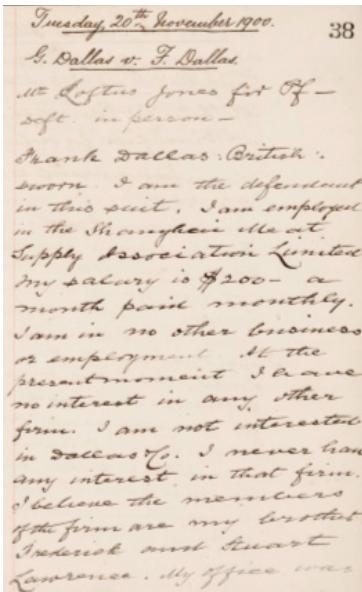 Tuesday, 20th November 1900.
38
G. Dallas v. F. Dallas.
Mr Loftus Jones for Pf -
Deft. in person -
Frank Dallas: British:
sworn. I am the defendant
in this suit. I am employed
in the Shanghai Meat
Supply Association Limited
My salary is $200 - a
month paid monthly.
I am in no other business
or employment. At the
present moment I have
no interest in any other
firm. I am not interested
in Dallas & Co. I never had
any interest in that firm.
I believe the members
of the firm are my brother
Frederick and Stuart
Lawrence. My office was